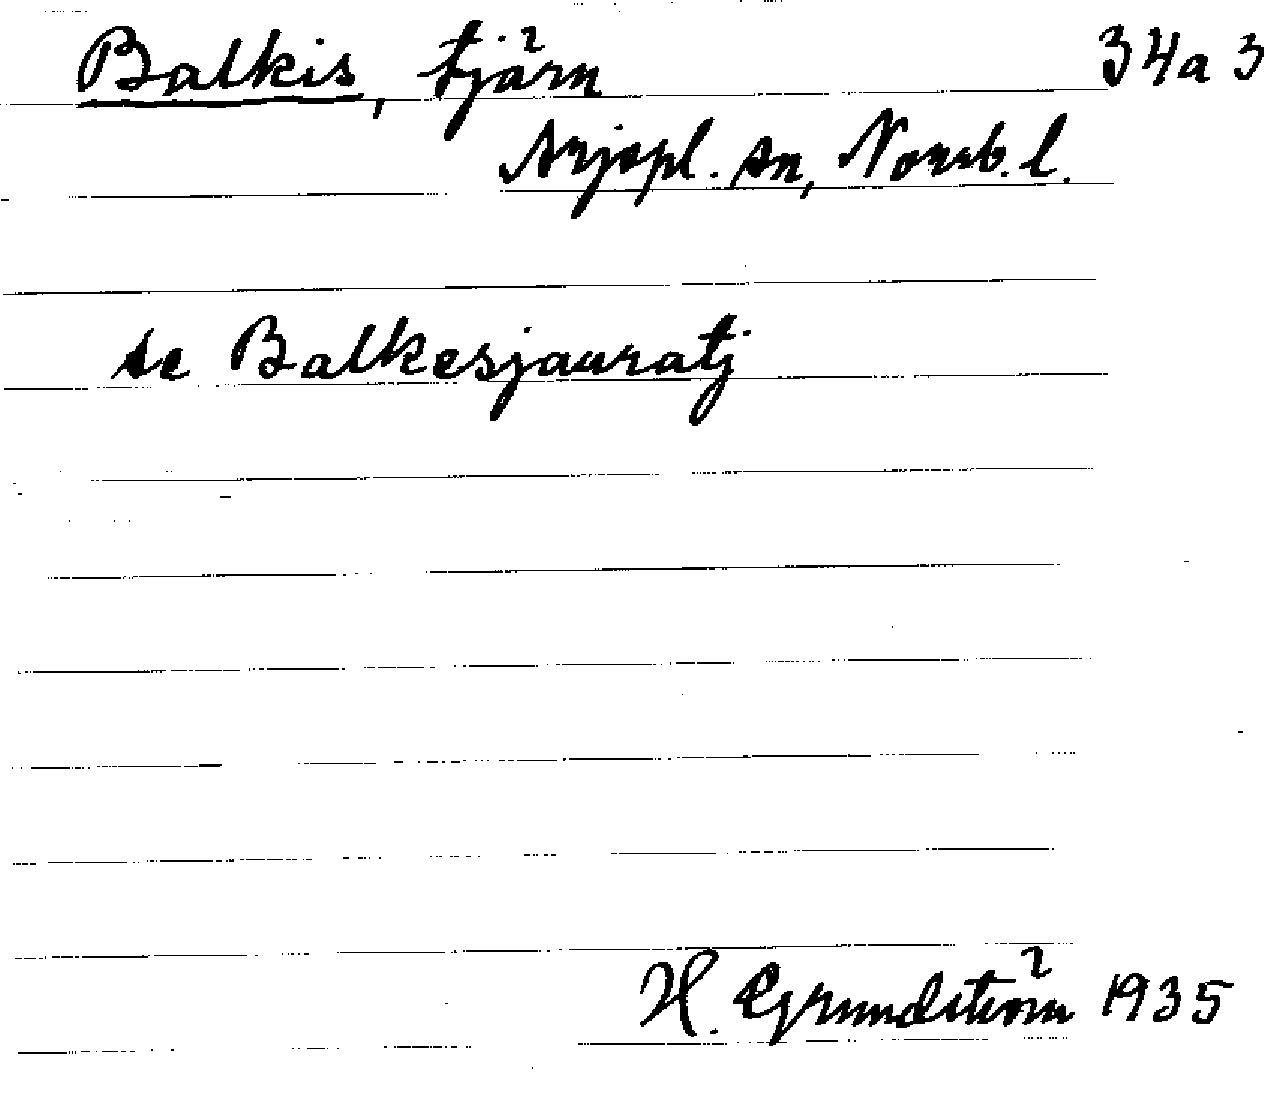 Balkis, tjärn 34a 3
Arjepl. sn, Norrb. l.
se Balkesjauratj
H. Grundström 1935